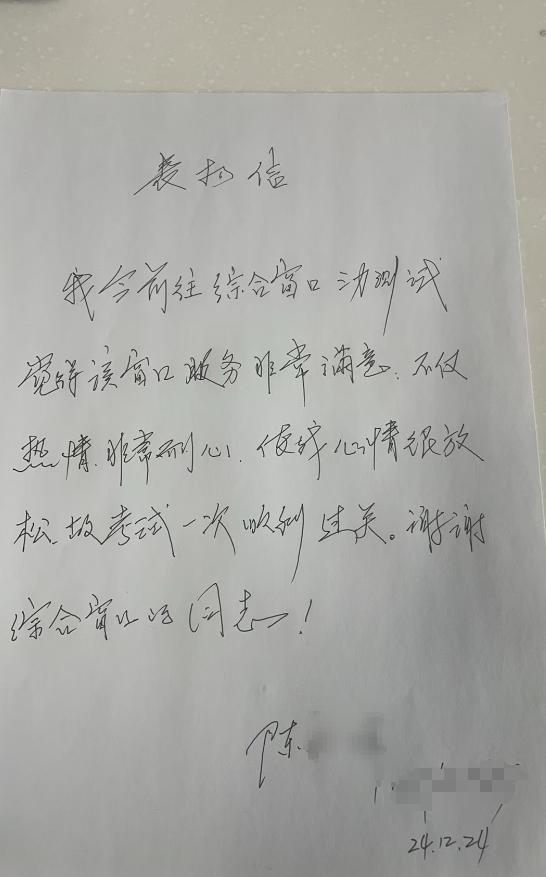 表扬信
我今前往综合窗口 测试
觉得该窗口服务非常满意.不仅
热情.非常耐心.使我心情很放
松.故考试一次顺利过关。谢谢
综合窗口的同志!
陈
24.12.24